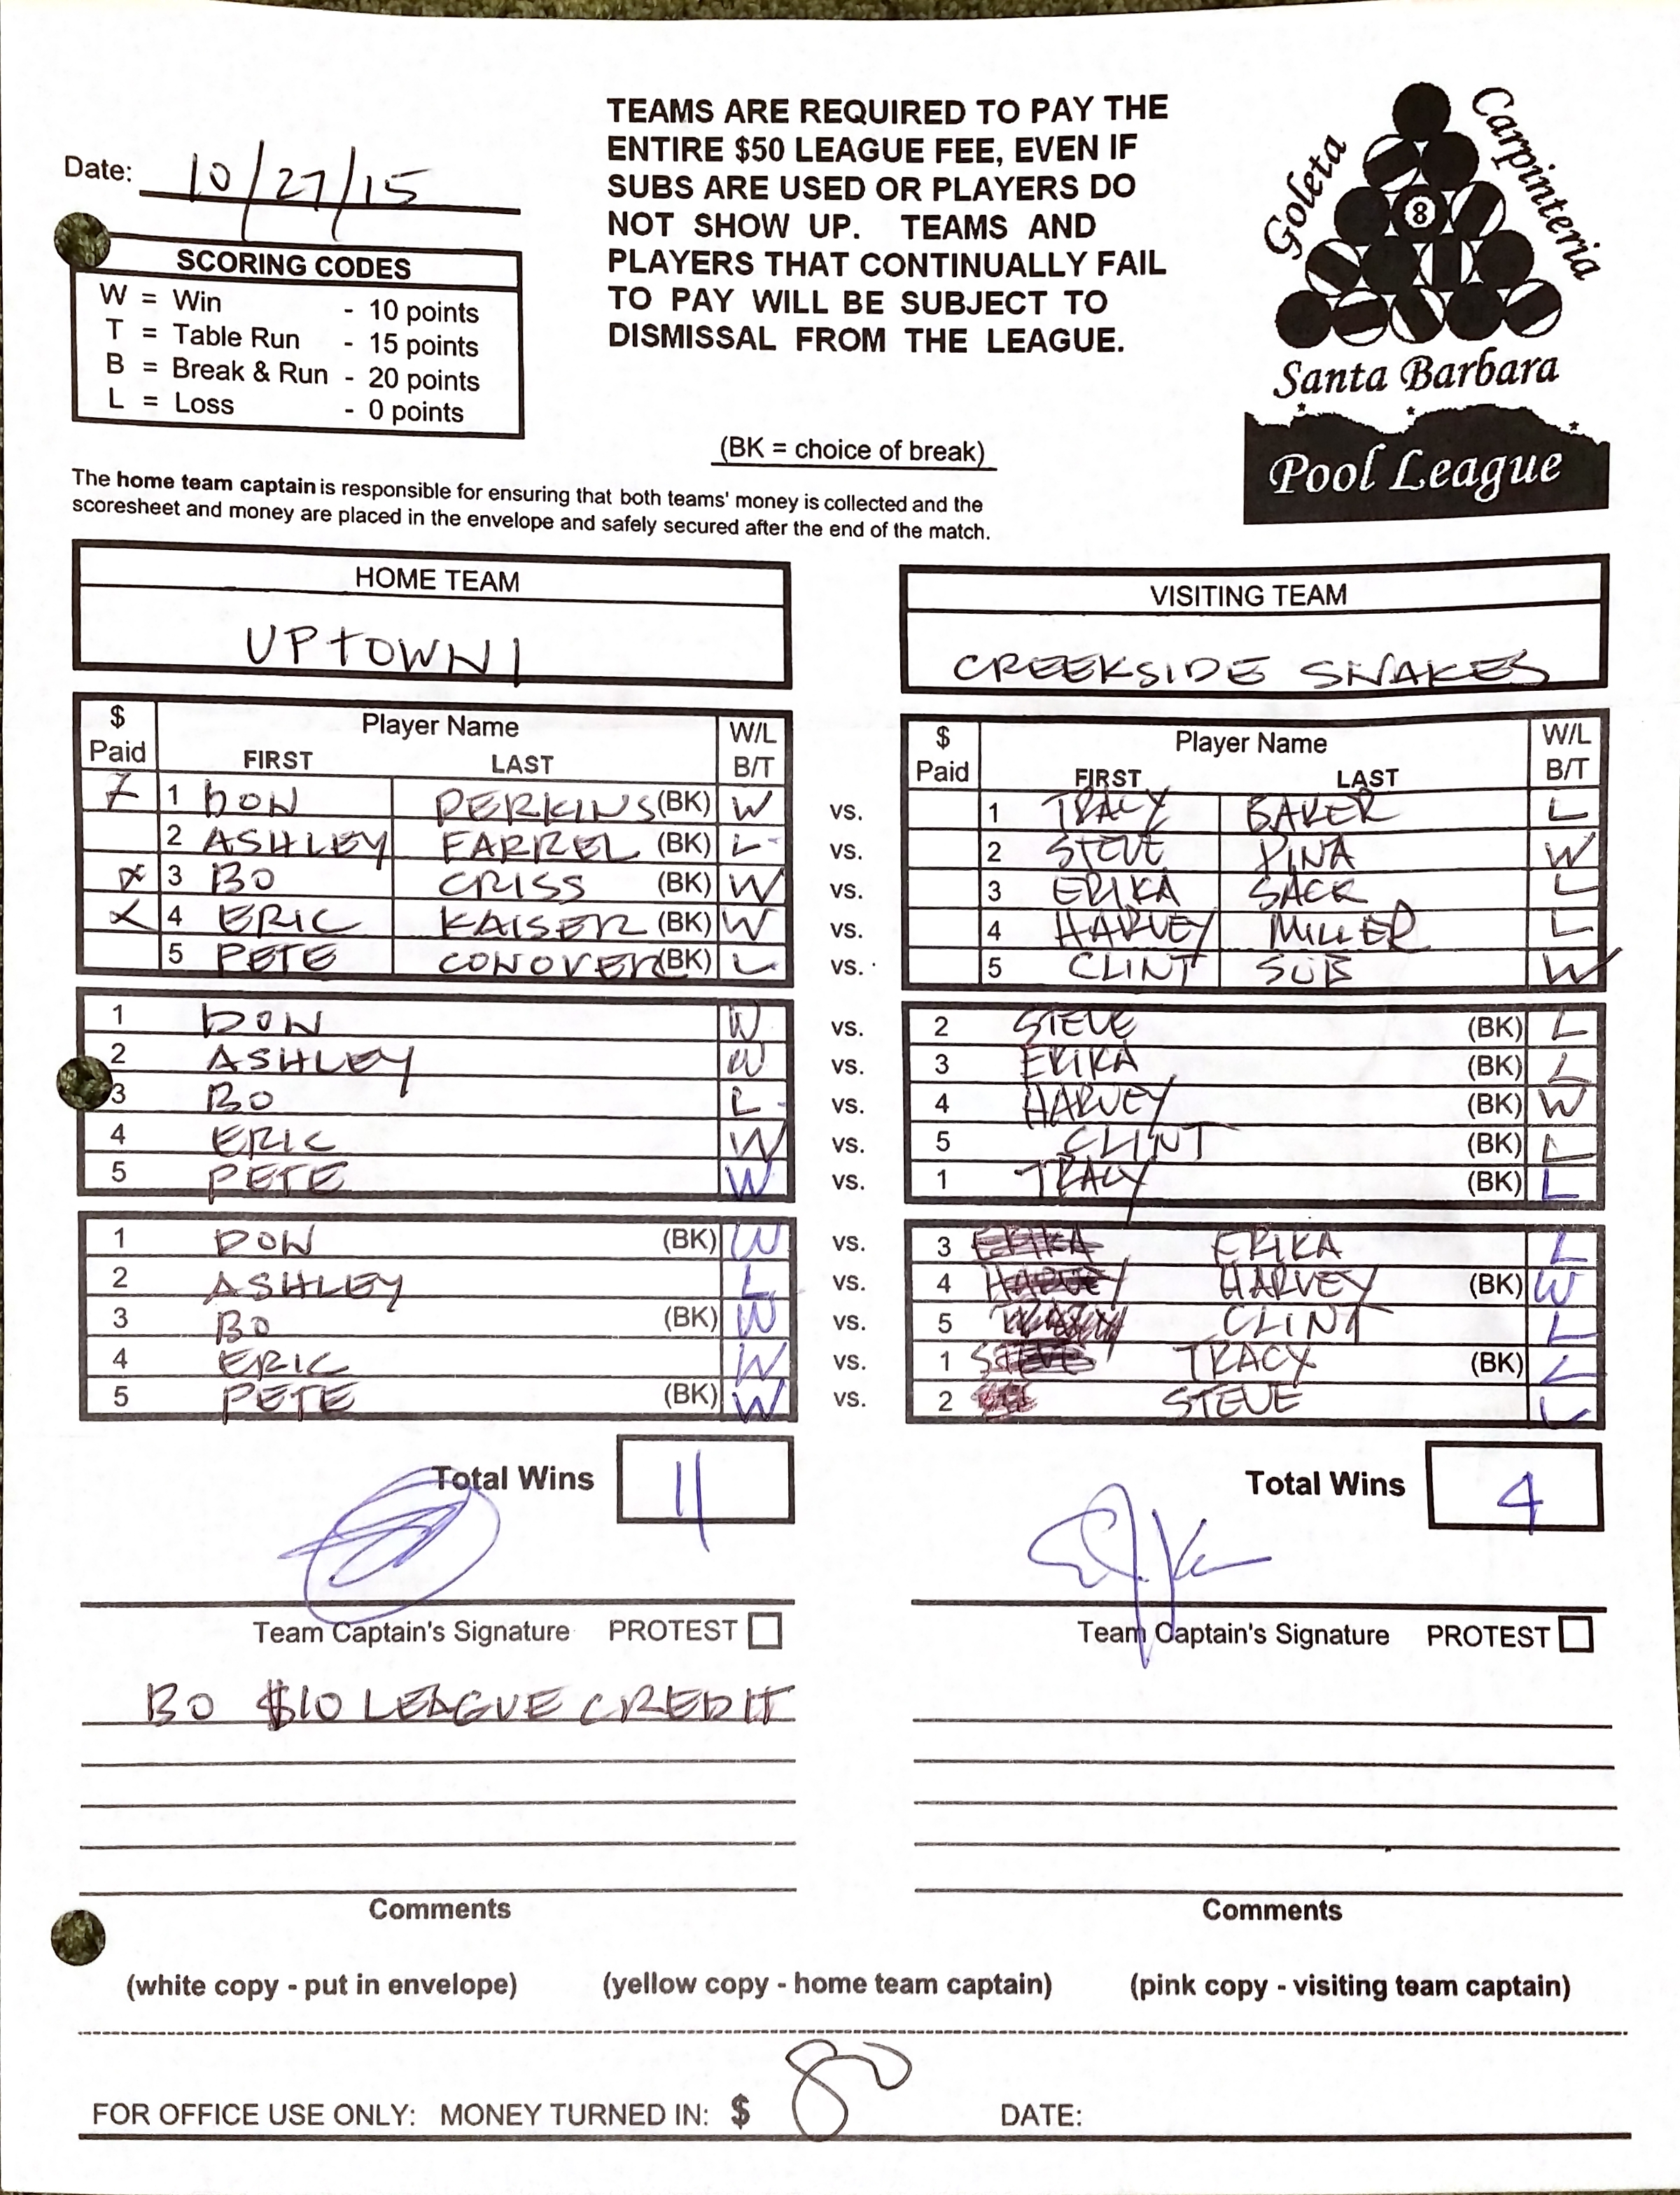 Date: 10/27/15
SCORING CODES
W = Win - 10 points
T = Table Run - 15 points
B = Break & Run - 20 points
L = Loss - 0 points
TEAMS ARE REQUIRED TO PAY THE
ENTIRE $50 LEAGUE FEE, EVEN IF
SUBS ARE USED OR PLAYERS DO
NOT SHOW UP. TEAMS AND
PLAYERS THAT CONTINUALLY FAIL
TO PAY WILL BE SUBJECT TO
DISMISSAL FROM THE LEAGUE.
(BK = choice of break)
Goleta
Carpinteria
8
Santa Barbara
Pool League
The home team captain is responsible for ensuring that both teams' money is collected and the
scoresheet and money are placed in the envelope and safely secured after the end of the match.
HOME TEAM
UPTOWN 1
VISITING TEAM
CREEKSIDE SNAKES
$ Paid Player Name FIRST LAST W/L B/T
$ Paid Player Name FIRST LAST W/L B/T
1 DON PERKINS (BK) W vs. 1 TRACY BAKER L
2 ASHLEY FARREL (BK) L vs. 2 STEVE PINA W
3 BO CRISS (BK) W vs. 3 ERIKA SACK L
4 ERIC KAISER (BK) W vs. 4 HARVEY MILLER L
5 PETE CONOVER (BK) L vs. 5 CLINT SUB W
1 DON W vs. 2 STEVE (BK) L
2 ASHLEY W vs. 3 ERIKA (BK) L
3 BO L vs. 4 HARVEY (BK) W
4 ERIC W vs. 5 CLINT (BK) L
5 PETE W vs. 1 TRACY (BK) L
1 DON (BK) W vs. 3 ERIKA ERIKA L
2 ASHLEY L vs. 4 HARVEY HARVEY (BK) W
3 BO (BK) W vs. 5 CLINT L
4 ERIC W vs. 1 STEVE TRACY (BK) L
5 PETE (BK) W vs. 2 STEVE L
Total Wins 11
Total Wins 4
Team Captain's Signature PROTEST
Team Captain's Signature PROTEST
BO $10 LEAGUE CREDIT
Comments
Comments
(white copy - put in envelope) (yellow copy - home team captain) (pink copy - visiting team captain)
FOR OFFICE USE ONLY: MONEY TURNED IN: $ 80 DATE: